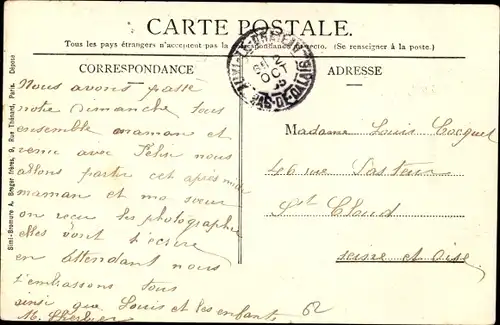 CARTE POSTALE.
Tous les pays étrangers n'acceptent pas la correspondance au recto. (Se renseigner à la poste.)
CORRESPONDANCE
ADRESSE
OCT
PAS-DE-CALAIS
Simi-Bromure A. Breger frères, 9, Rue Thénard, Paris. Déposé
Nous avons passé
notre Dimanche tous
ensemble maman et
venue avec Félix nous
allons partir cet après midi
maman et ma sœur
on recu les photographie
elles vont t'écrire
en attendant nous
t'embrassons tous
ainsi que Louis et les enfants
M.
62
Madame Louis Cocquel
46 rue Pasteur
St Cloud
seine et oise